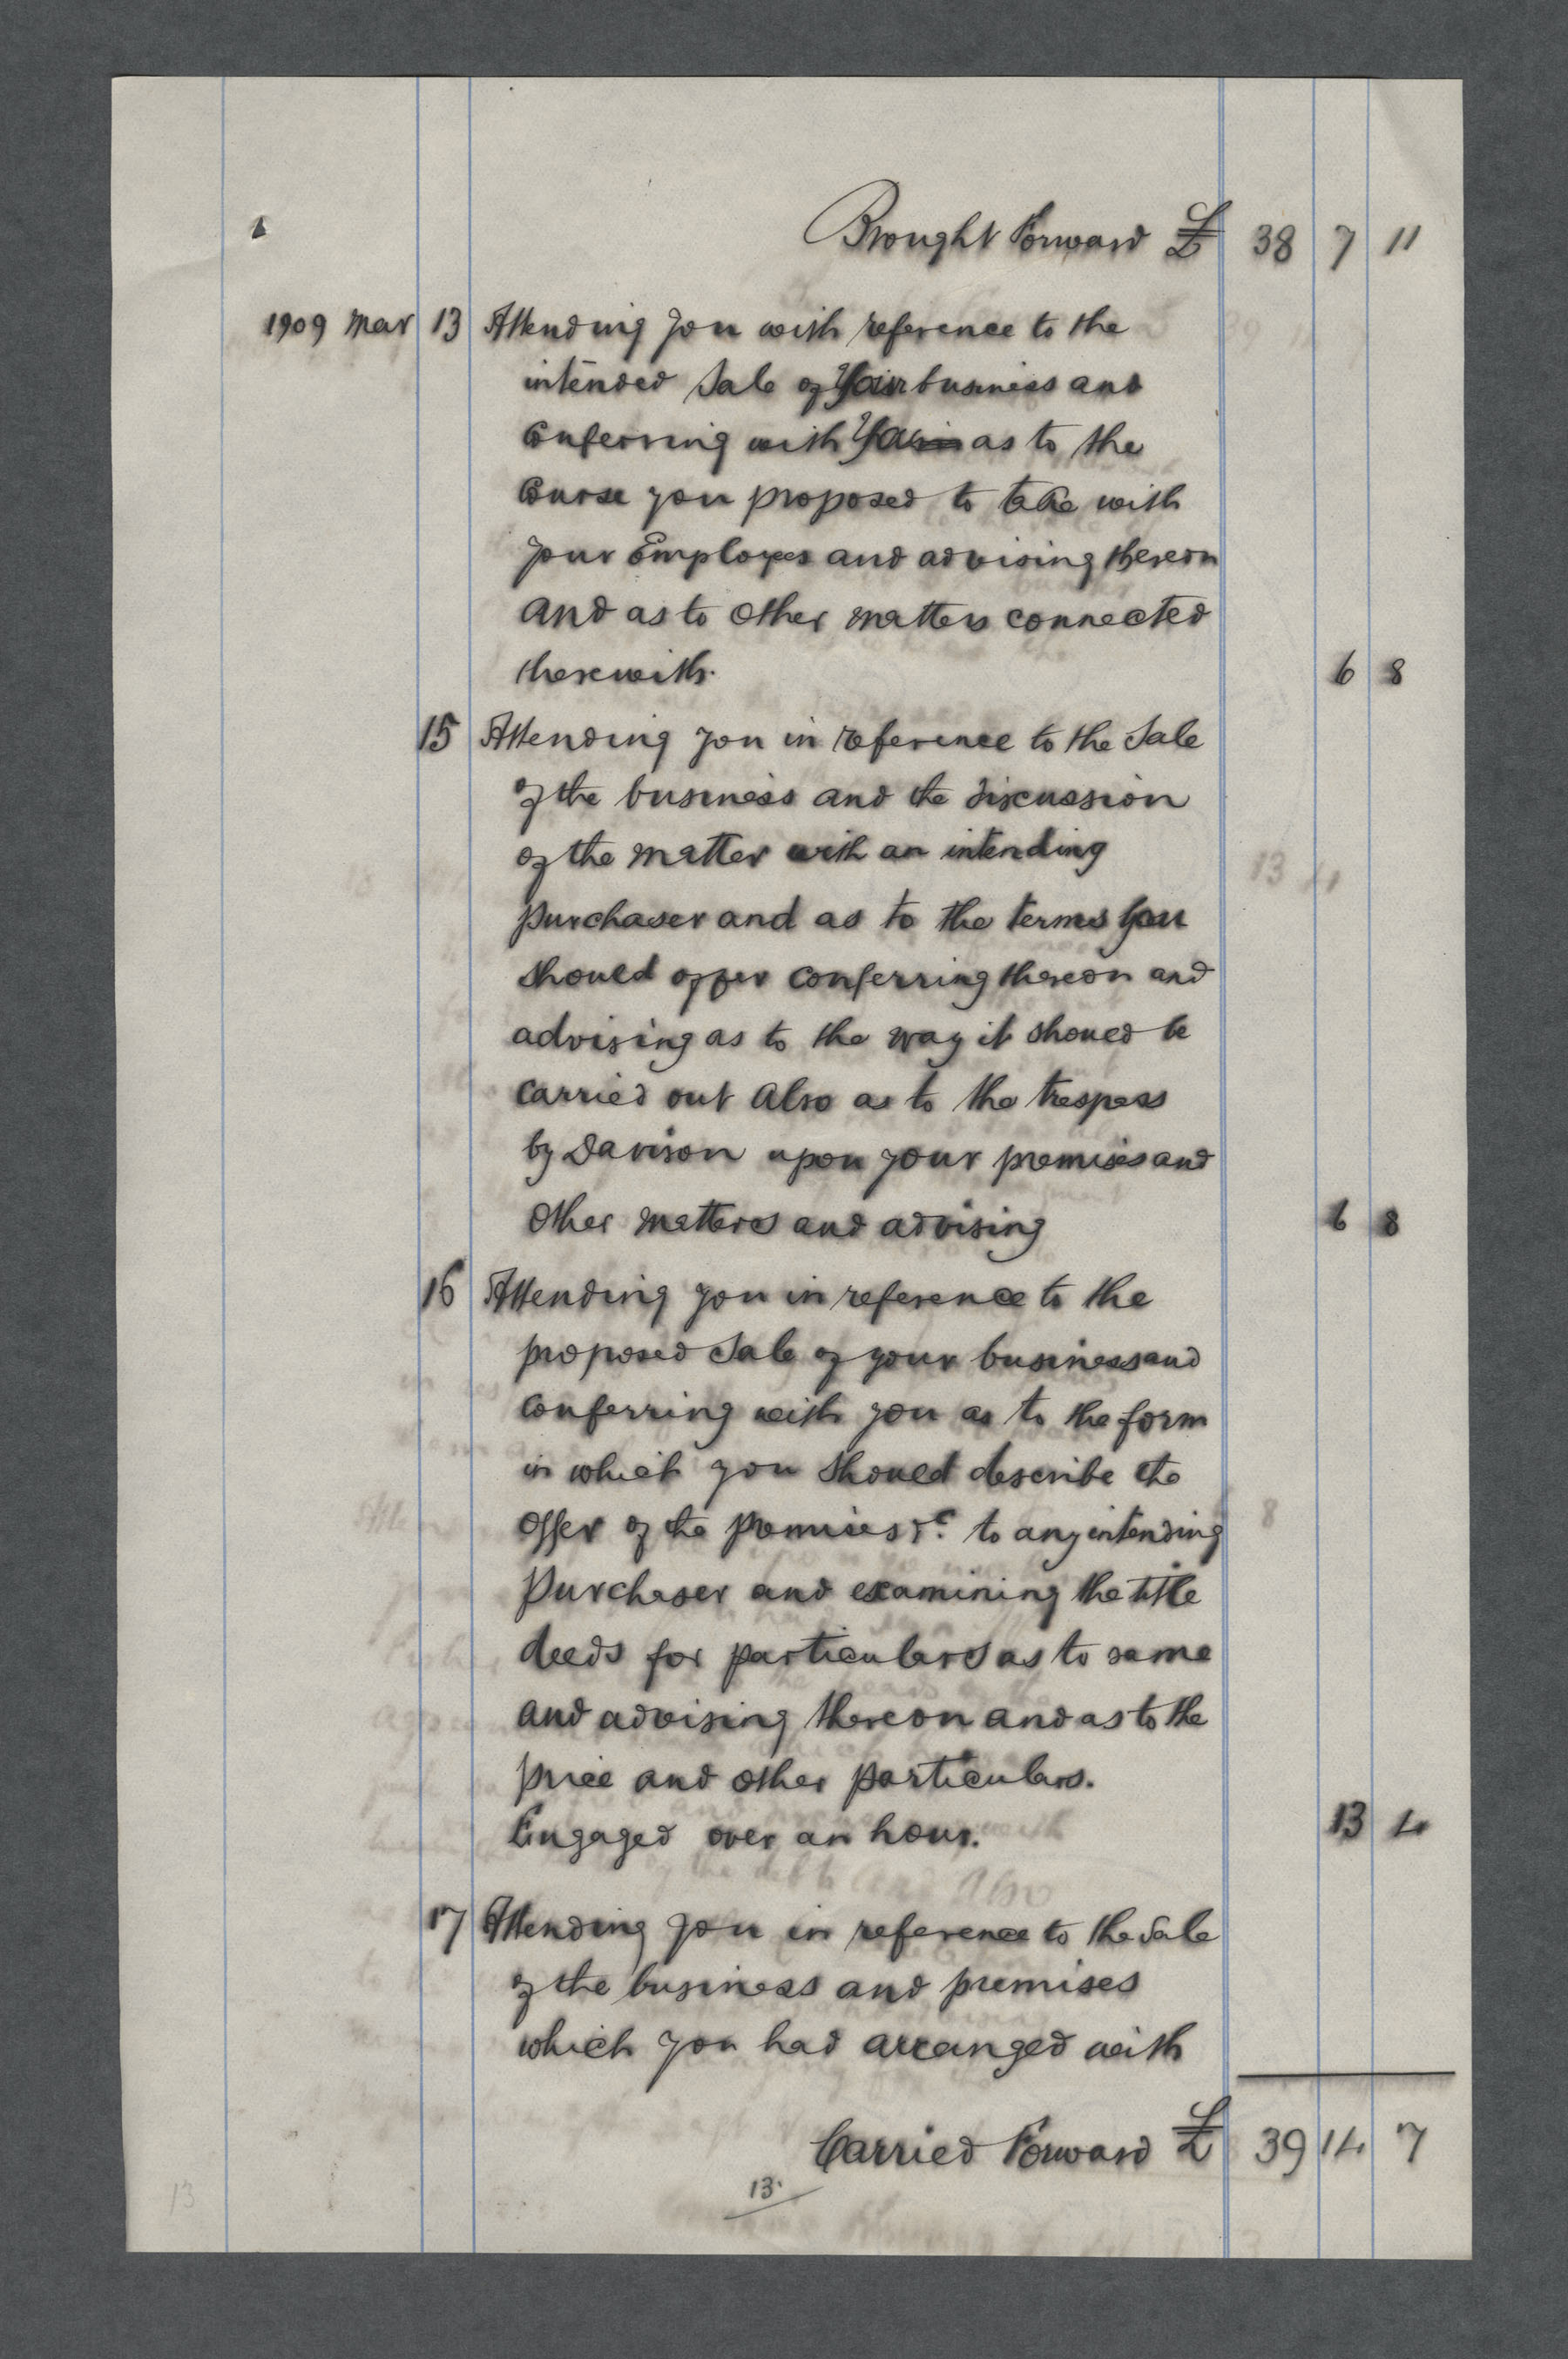 Brought Forward £ 38 7 11
1909 Mar 13 Attending you with reference to the
intended Sale of Your business and
Conferring with You as to the
Course you proposed to take with
your Employes and advising thereon
and as to other matters connected
therewith. 6 8
15 Attending you in reference to the Sale
of the business and the discussion
of the matter with an intending
purchaser and as to the terms you
should offer conferring thereon and
advising as to the way it should be
carried out Also as to the trespass
by Davison upon your premises and
other matters and advising 6 8
16 Attending you in reference to the
proposed Sale of your business and
conferring with you as to the form
in which you should describe the
offer of the premises &c. to any intending
purchaser and examining the title
deeds for particulars as to same
and advising thereon and as to the
price and other particulars.
Engaged over an hour. 13 4
17 Attending you in reference to the Sale
of the business and premises
which you had arranged with
Carried Forward £ 39 14 7
13.
13